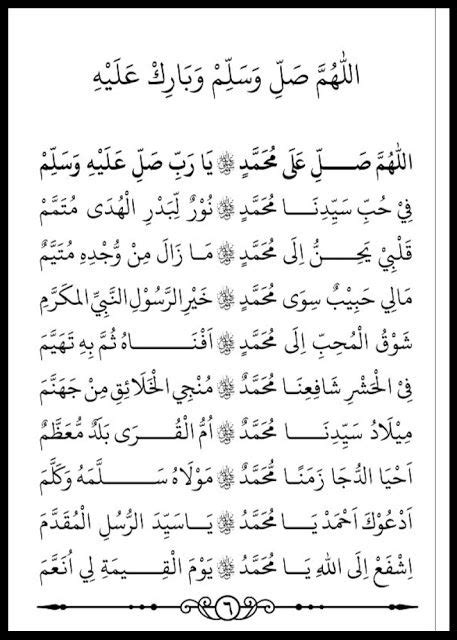 اللّٰهُمَّ صَلِّ وَسَلِّمْ وَبَارِكْ عَلَيْهِ
اللّٰهُمَّ صَلِّ عَلَى مُحَمَّدٍ ﷺ يَا رَبِّ صَلِّ عَلَيْهِ وَسَلِّمْ
فِيْ حُبِّ سَيِّدِنَا مُحَمَّدٍ ﷺ نُوْرٌ لِّبَدْرِ الْهُدَى مُتَمَّمْ
قَلْبِيْ يَحِنُّ اِلَى مُحَمَّدٍ ﷺ مَا زَالَ مِنْ وُّجْدِهِ مُتَيَّمْ
مَالِي حَبِيْبٌ سِوَى مُحَمَّدٍ ﷺ خَيْرِ الرَّسُوْلِ النَّبِيِّ المكَرَّمِ
شَوْقُ الْمُحِبِّ اِلَى مُحَمَّدٍ ﷺ اَفْنَاهُ ثُمَّ بِهِ تَهَيَّمَ
فِيْ الْحَشْرِ شَافِعِنَا مُحَمَّدٌ ﷺ مُنْجِي الْخَلَائِقِ مِنْ جَهَنَّمَ
مِيْلَادُ سَيِّدِنَا مُحَمَّدٌ ﷺ اُمُّ الْقُرَى بَلَدٌ مُّعَظَّمٌ
اَحْيَا الدُّجَا زَمَنًا مُّحَمَّدٌ ﷺ مَوْلَاهُ سَلَّمَهُ وَكَلَّمَ
اَدْعُوْكَ اَحْمَدْ يَا مُحَمَّدُ ﷺ يَاسَيِّدَ الرُّسُلِ الْمُقَدَّمَ
اِشْفَعْ اِلَى اللهِ يَا مُحَمَّدُ ﷺ يَوْمَ الْقِيمَةِ لِي اُنَعَّمَ
٦